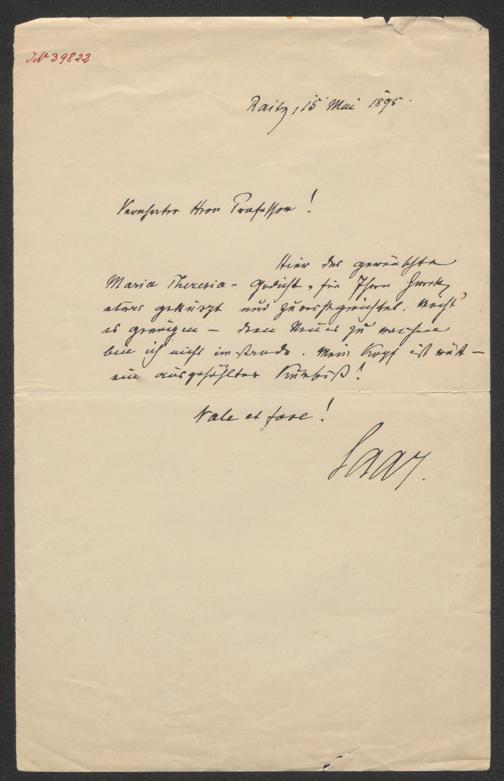 JN 39822
Raitz, 15 Mai 1895.
Verehrter Herr Professor!
Hier das gewünschte
Maria Theresia-Gedicht, für Ihren Zweck
etwas gekürzt und zurechtgerichtet. Möcht'
es genügen – denn Neues zu machen
bin ich nicht im Stande. Mein Kopf ist wüst –
ein ausgehöhlter Kürbiß!
Vale et fave!
Saar.